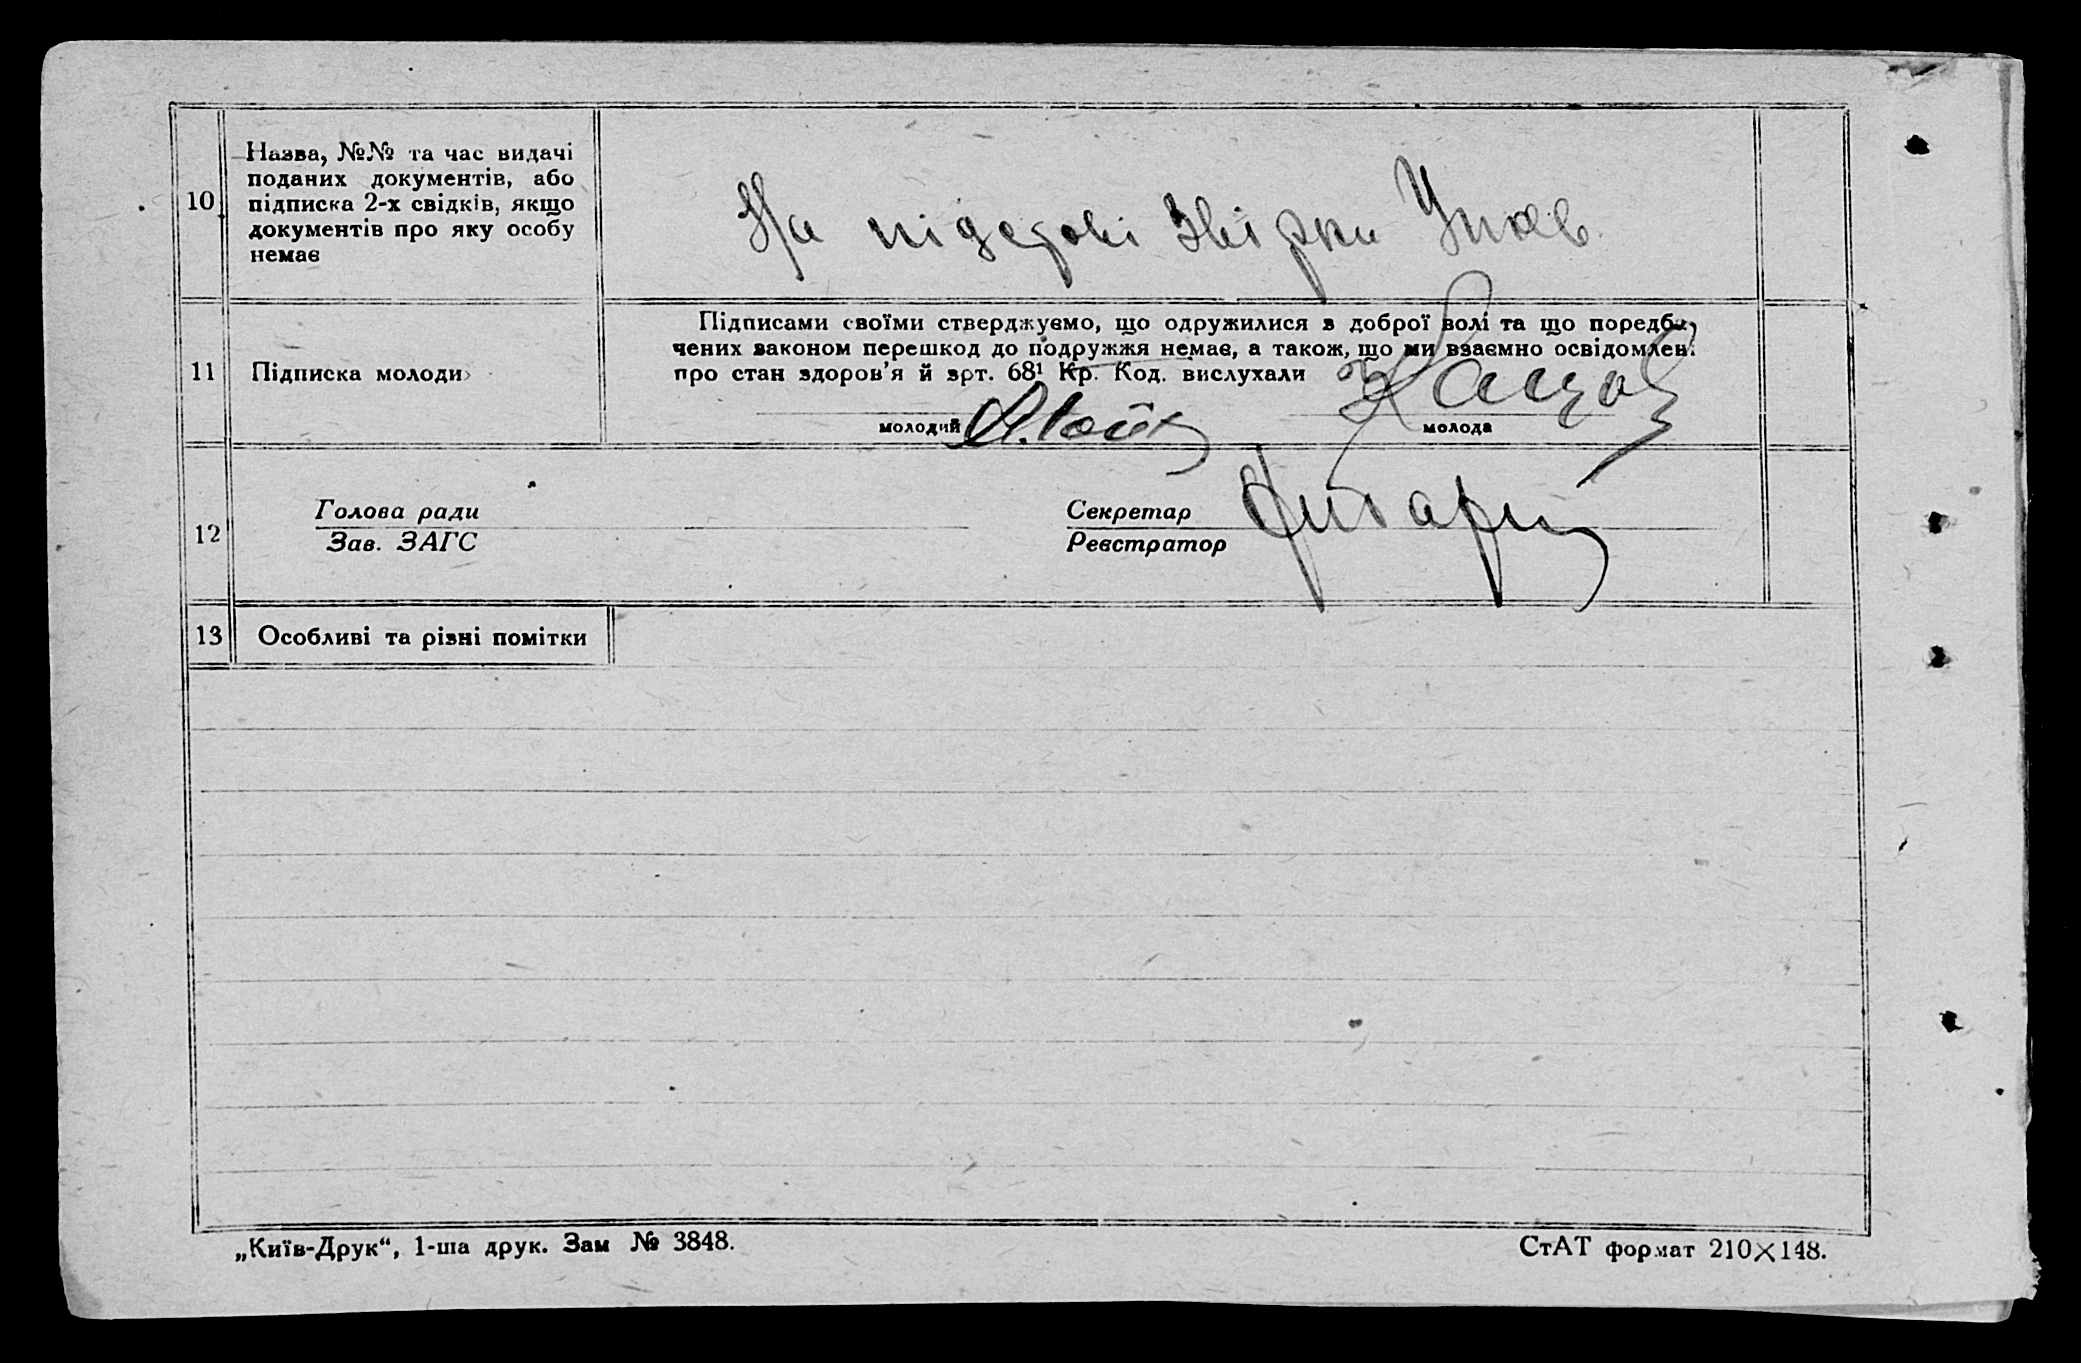 10
Назва, №№ та час видачі
поданих документів, або
підписка 2-х свідків, якщо
документів про яку особу
немає
На підставі
11
Підписка молоди
Підписами своїми стверджуємо, що одружилися з доброї волі та що поредба-
чених законом перешкод до подружжя немає, а також, що ми взаємно освідомлені
про стан здоров'я й арт. 68¹ Кр. Код. вислухали
молодий
молода
12
Голова ради
Секретар
Зав. ЗАГС
Реєстратор
13
Особливі та різні помітки
„Київ-Друк“, 1-ша друк. Зам № 3848.
СтАТ формат 210×148.